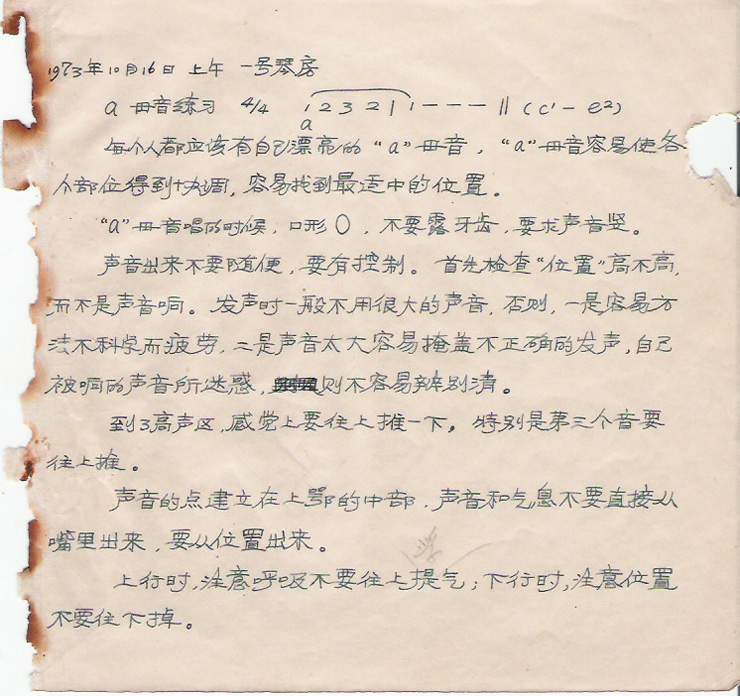 1973年10月16日 上午 一号琴房
a 母音练习 4/4 1 2 3 2 1 | 1 - - - ‖ (c¹- e²)
a
每个人都应该有自己漂亮的“a”母音，“a”母音容易使各
个部位得到协调，容易找到最适中的位置。
“a”母音唱的时候，口形O，不要露牙齿，要求声音竖。
声音出来不要随便，要有控制。首先检查“位置”高不高，
而不是声音响。发声时一般不用很大的声音，否则，一是容易方
法不科学而疲劳，二是声音太大容易掩盖不正确的发声，自己
被响的声音所迷惑，则不容易辨别清。
到了高声区，感觉上要往上推一下，特别是第三个音要
往上推。
声音的点建立在上鄂的中部，声音和气息不要直接从
嘴里出来，要从位置出来。
上行时，注意呼吸不要往上提气；下行时，注意位置
不要往下掉。